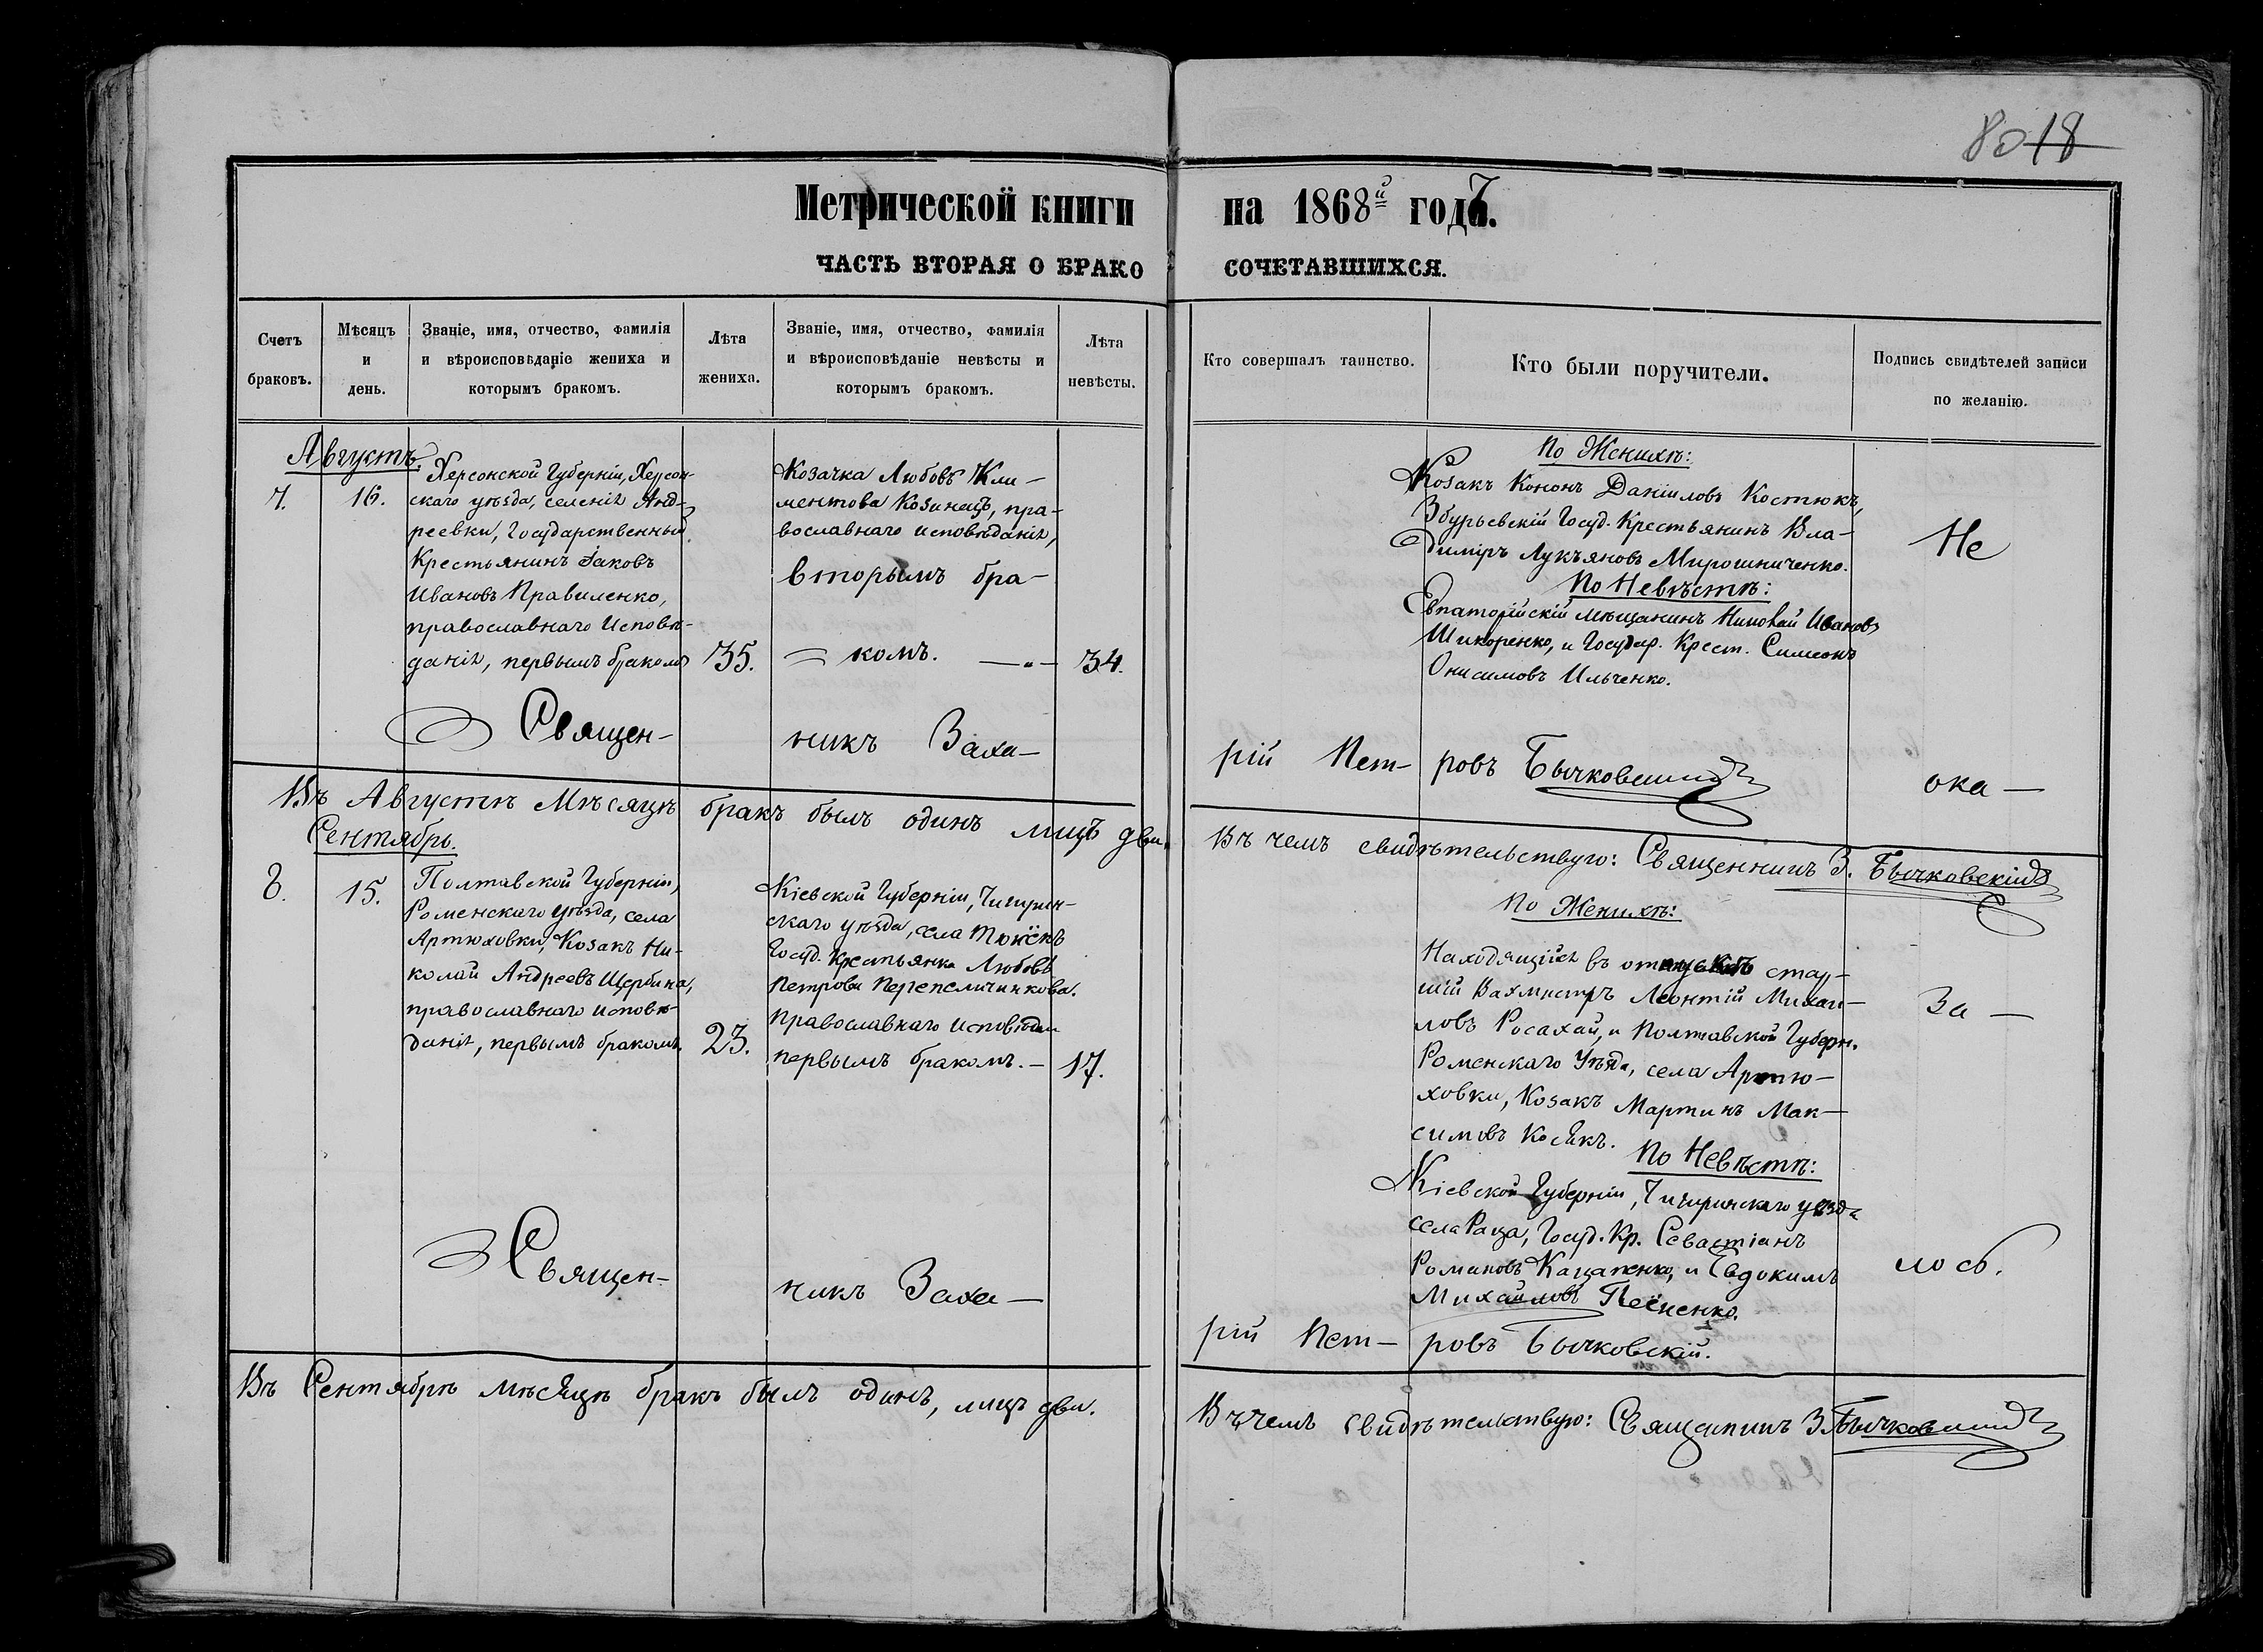 80 18
Метрической книги на 1868й годъ.
ЧАСТЬ ВТОРАЯ О БРАКОСОЧЕТАВШИХСЯ.
Счетъ
браковъ.
Мѣсяцъ
и
день.
Званіе, имя, отчество, фамилія
и вѣроисповѣданіе жениха и
которымъ бракомъ.
Лѣта
жениха.
Званіе, имя, отчество, фамилія
и вѣроисповѣданіе невѣсты и
которымъ бракомъ.
Лѣта
невѣсты.
Кто совершалъ таинство.
Кто были поручители.
Подпись свидѣтелей записи
по желанію.
Августъ.
7.
16.
Херсонской Губерніи, Херсон-
скаго уѣзда, селенія Анд-
реевки, Государственный
Крестьянинъ Іаковъ
Ивановъ Правиленко,
православнаго исповѣ-
данія, первымъ бракомъ
35.
Козачка Любовь Кли-
ментова Козинецъ, пра-
вославнаго исповѣданія,
вторымъ бра-
комъ.
34.
По Женихѣ:
Козакъ Кононъ Даніиловъ Костюкъ,
Збурьевскій Госуд. Крестьянинъ Вла-
димір Лукьяновъ Мирошниченко.
По Невѣстѣ:
Евпаторійскій мѣщанинъ Николай Ивановъ
Шикоренко, и Государ. Крест. Симеонъ
Онисимовъ Ильченко.
Не
Священ-никъ Заха-рій Пет-ровъ Бычковскій
ока-
Въ Августѣ Мѣсяцѣ бракъ былъ одинъ лицъ два.
Въ чемъ свидѣтельствую: Священникъ З. Бычковскій
Сентябрь.
8.
15.
Полтавской Губерніи,
Роменскаго уѣзда, села
Артюховки, Козакъ Ни-
колай Андреевъ Щербина,
православнаго исповѣ-
данія, первымъ бракомъ.
23.
Кіевской Губерніи, Чигирин-
скаго уѣзда, села
Госуд. Крестьянка Любовь
Петрова Перепеличинкова.
православнаго исповѣдан
первымъ бракомъ.
17.
По Женихѣ:
Находящійся въ отпускѣ стар-
шій Вахмистръ Леонтій Михаи-
ловъ Росахай, и Полтавской Губерн.
Роменскаго Уѣзда, села Артю-
ховки, Козакъ Мартинъ Мак-
симовъ Косякъ.
По Невѣстѣ:
Кіевской Губерніи, Чигиринскаго уѣзда
села Раца, Госуд. Кр. Севастіанъ
Романовъ Кацапенко, и Евдокимъ
Михайловъ
За-
лось.
Священ-никъ Заха-рій Пет-ровъ Бычковскій.
Въ Сентябрѣ мѣсяцѣ бракъ былъ одинъ, лицъ два.
Въ чемъ свидѣтельствую: Священникъ З. Бычковскій